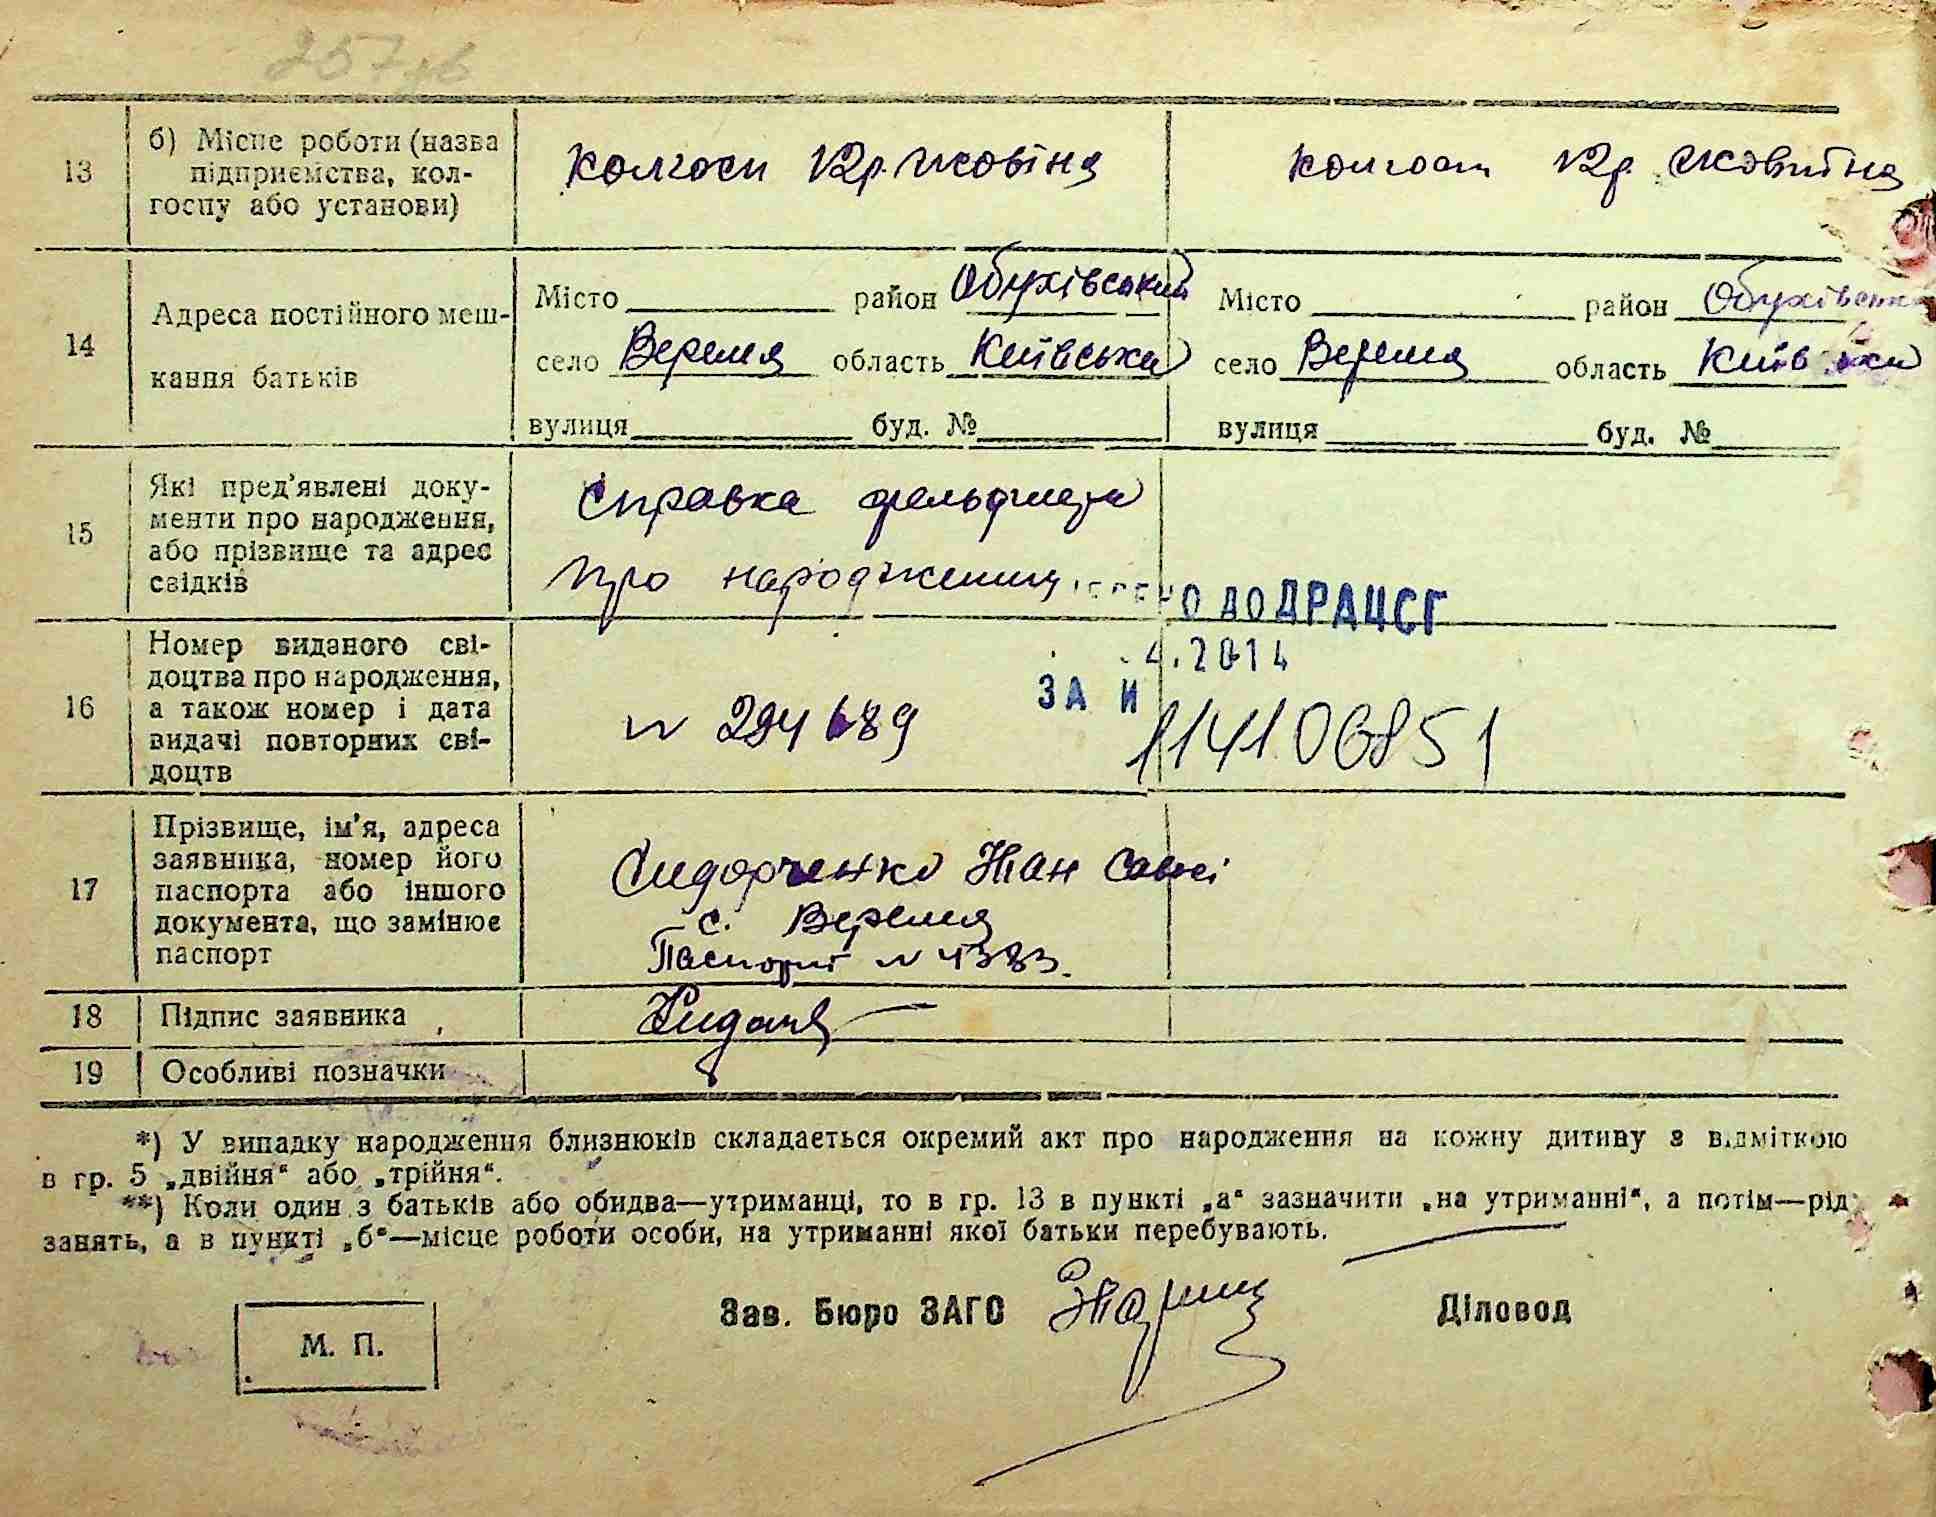 257зв
13 б) Місце роботи (назва підприємства, колгоспу або установи) колгосп 12 р. жовтня колгосп 12 р. жовтня
Місто район Обухівський Місто район Обухівськи
14 Адреса постійного меш-
село Веремя область Київська село Веремя область Київська
кання батьків
вулиця буд. № вулиця буд. №
15 Які пред'явлені доку-
менти про народження,
або прізвище та адрес
свідків
Справка фельдшера
про народження
О ДО ДРАЦСГ
4.2014
ЗА
16 Номер виданого сві-
доцтва про народження,
а також номер і дата
видачі повторних сві-
доцтв
N 294689
114106851
17 Прізвище, ім'я, адреса
заявника, номер його
паспорта або іншого
документа, що замінює
паспорт
Сидорченко
с. Веремя
Паспорт N 4383.
18 Підпис заявника
19 Особливі позначки
*) У випадку народження близнюків складається окремий акт про народження на кожну дитину з відміткою
в гр. 5 „двійня“ або „трійня“.
**) Коли один з батьків або обидва—утриманці, то в гр. 13 в пункті „а“ зазначити „на утриманні“, а потім—рід
занять, а в пункті „б“—місце роботи особи, на утриманні якої батьки перебувають.
Зав. Бюро ЗАГС Діловод
М. П.